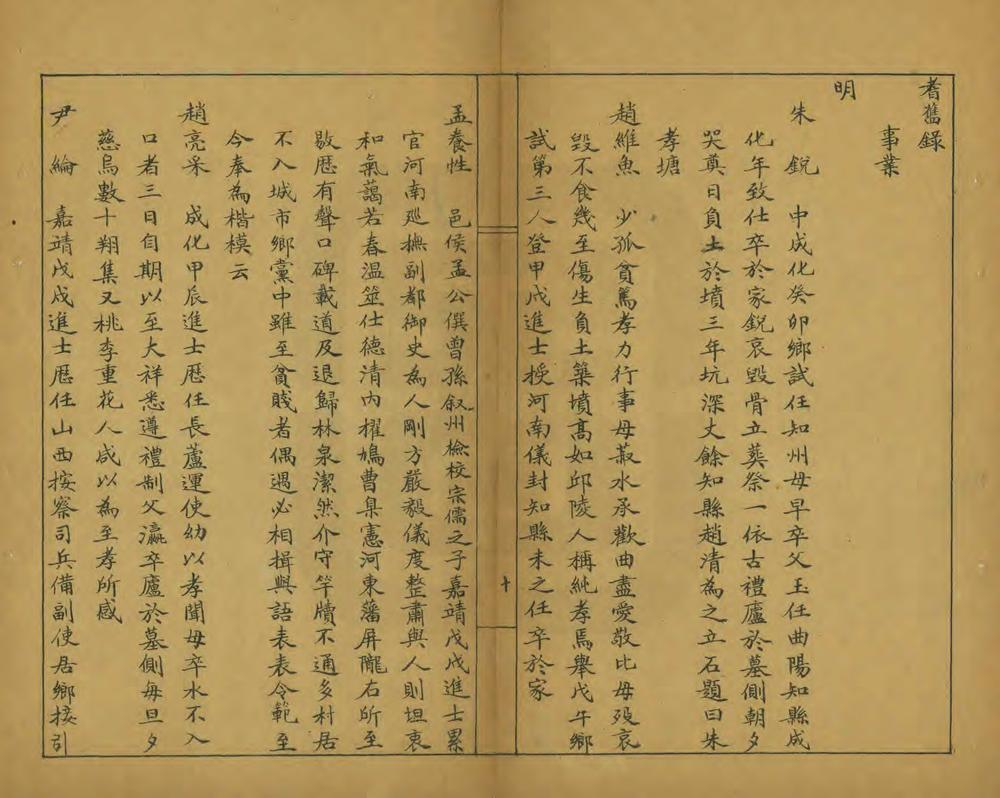 耆舊録
事業
明
朱　銳　中成化癸卯鄉試任知州母早卒父玉任曲陽知縣成
化年致仕卒於家銳哀毀骨立葬祭一依古禮廬於墓側朝夕
哭奠日負土於墳三年坑深丈餘知縣趙清為之立石題曰朱
孝塘
趙維魚　少孤貧篤孝力行事母菽水承歡曲盡愛敬比母歿哀
毀不食幾至傷生負土築墳高如邱陵人稱純孝焉舉戊午鄉
試第三人登甲戌進士授河南儀封知縣未之任卒於家
十
孟養性　邑侯孟公僎曾孫叙州檢校宗儒之子嘉靖戊戌進士累
官河南廵撫副都御史為人剛方嚴毅儀度整肅與人則坦衷
和氣藹若春温筮仕德清內擢鳩曹臬憲河東藩屏隴右所至
敭歴有聲口碑載道及退歸林泉潔然介守竿牘不通多村居
不入城市鄉黨中雖至貧賤者偶遇必相揖與語表表令範至
今奉為楷模云
趙亮采　成化甲辰進士歴任長蘆運使幼以孝聞母卒水不入
口者三日自期以至大祥悉遵禮制父瀛卒廬於墓側每旦夕
慈烏數十翔集又桃李重花人咸以為至孝所感
尹　綸　嘉靖戊戌進士歴任山西按察司兵備副使居鄉接引